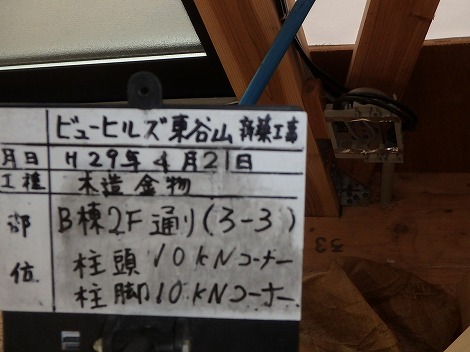 ビューヒルズ東谷山 新築工事
月日 H29年4月21日
工種 木造金物
部位 B棟2F通り(ろ-3)
柱頭10kNコーナー
柱脚10kNコーナー
33